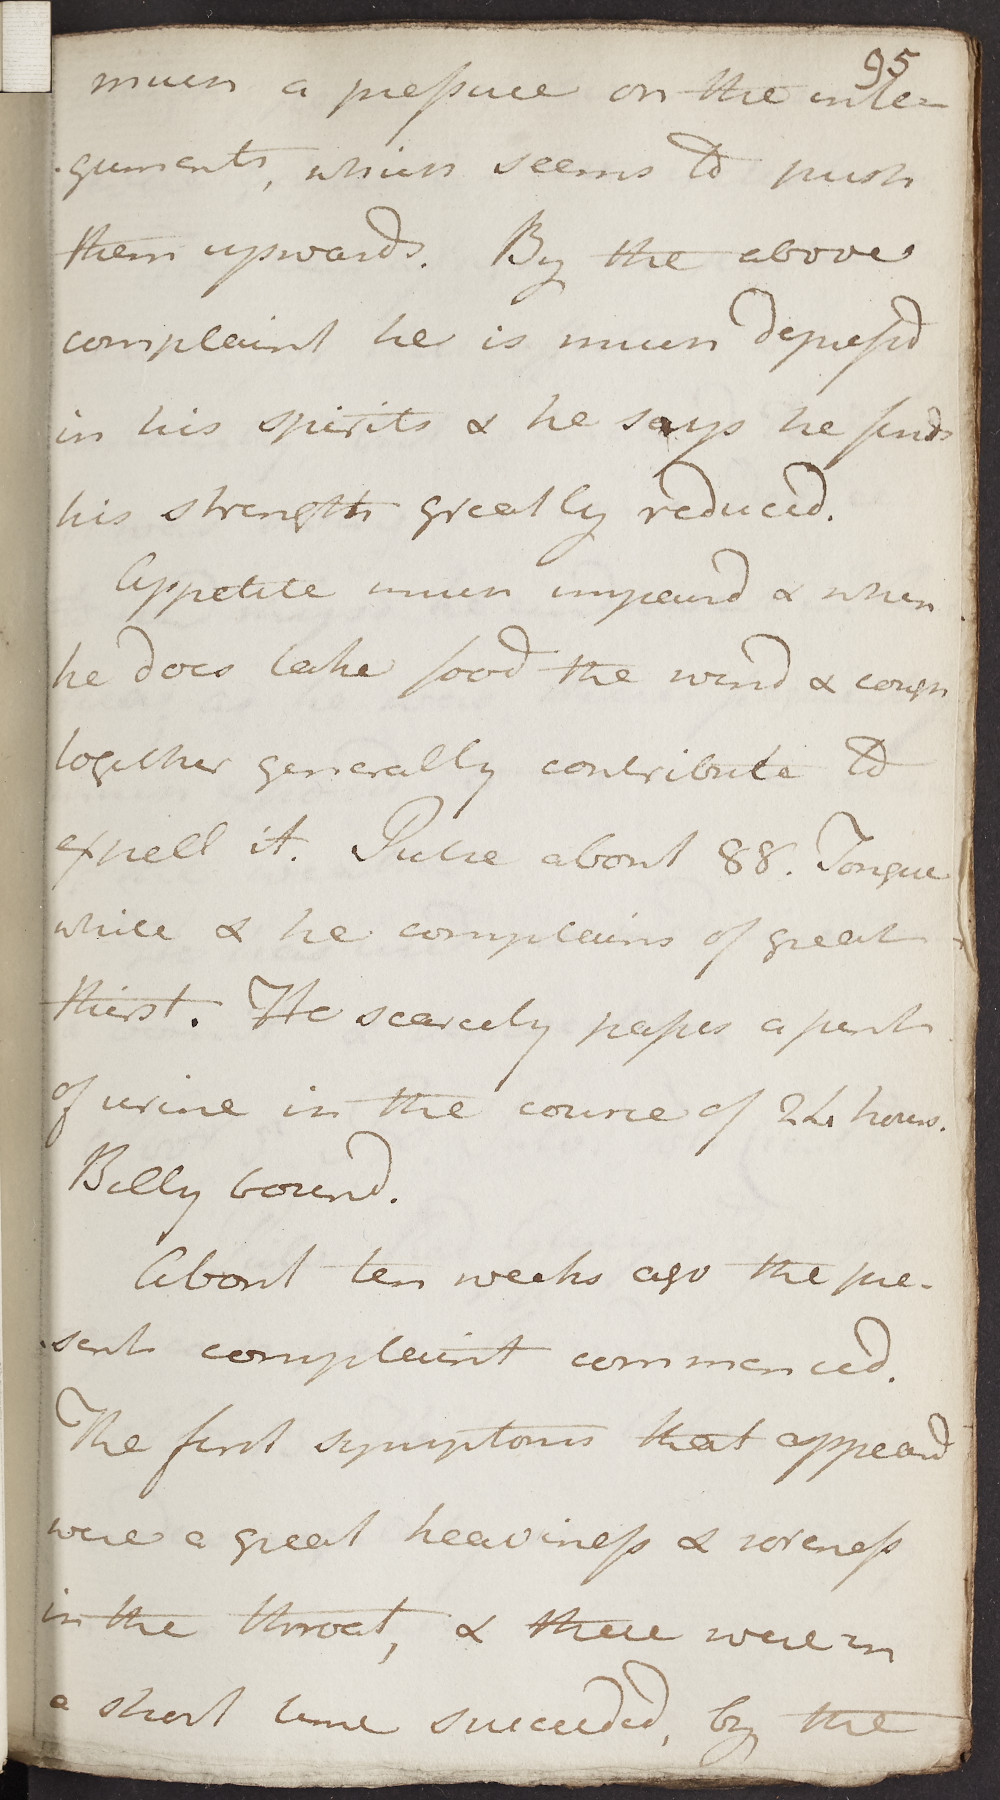 95
much a pressure on the inte-
-guments, which seems to push
them upwards. By the above
complaint he is much depress'd
in his spirits & he says he finds
his strength greatly reduced.
Appetite much impeard & when
he does take food the wind & cough
together generally contribute to
expell it. Pulse about 88. Tongue
white & he complains of great
thirst. He scarcely passes a pint
of urine in the course of 24 hours.
Belly bound.
About ten weeks ago the pre-
-sent complaint commenced.
The first symptoms that appeard
were a great heaviness & soreness
in the throat, & these were in
a short time succeeded, by the